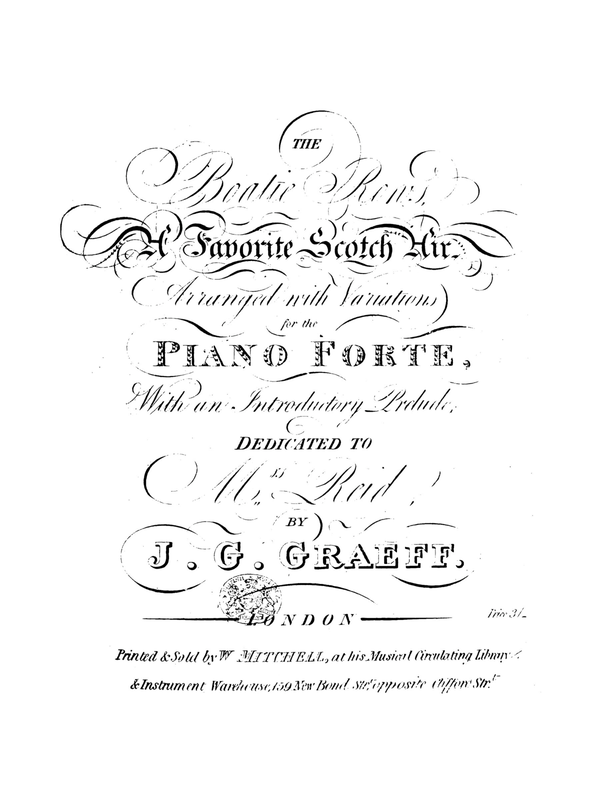 THE
Boatie Rows,
A Favorite Scotch Air.
Arranged with Variations
for the
PIANO FORTE,
With an Introductory Prelude,
DEDICATED TO
Mrs. Reid,
BY
J. G. GRAEFF.
LONDON
Price 3/-
Printed & Sold by W MITCHELL, at his Musical Circulating Library
& Instrument Warehouse, 159 New Bond Str.t opposite Clifford Str.t